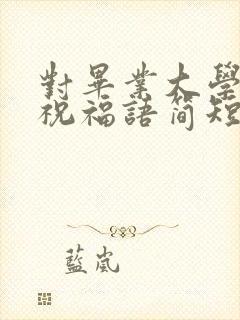 對畢業大學
祝福語简短
藍嵐